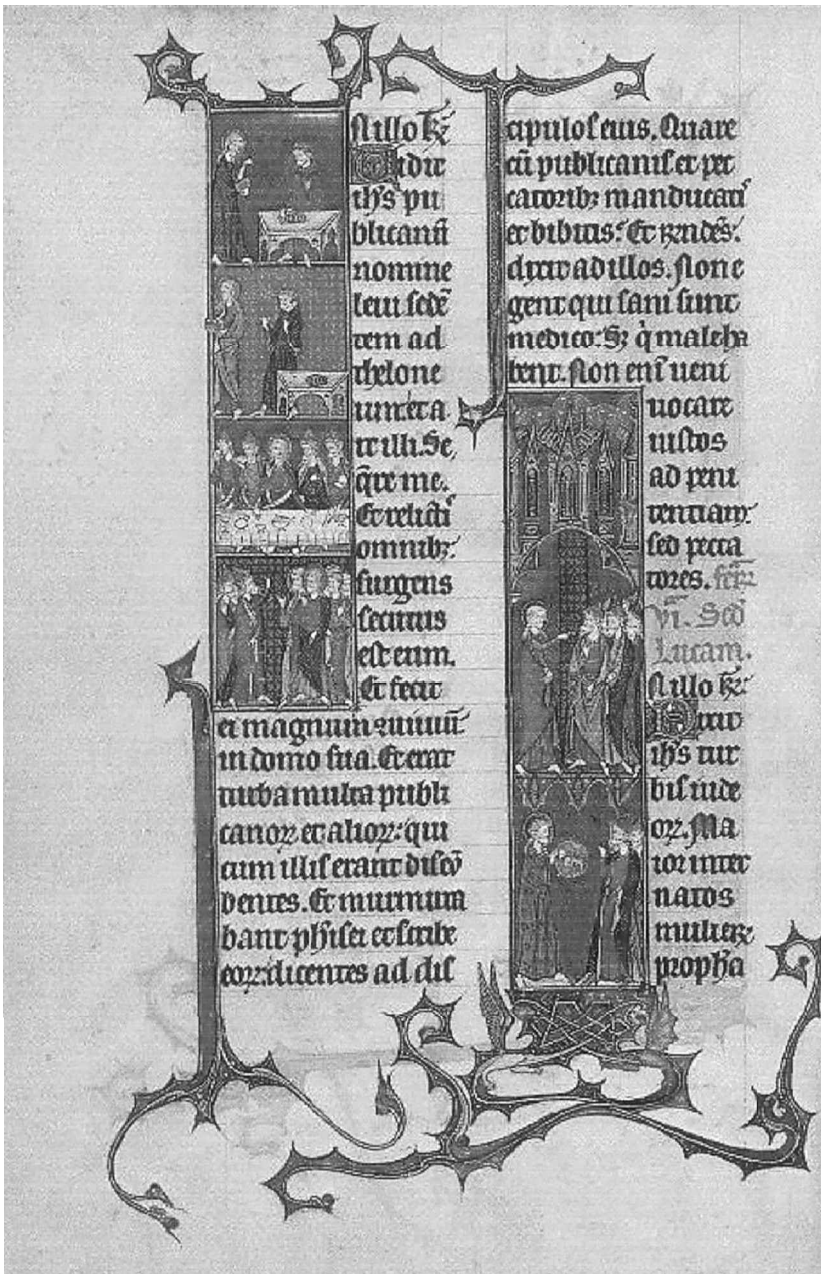 N illo t̄r̄
Vidit
ih̄s pu
blicanū
nomine
leui sedē
tem ad
thelone
um et a
it illi. Se
q̄re me.
Et relict̉
omnibꝫ
surgens
secutus
est eum.
Et fecit
ei magnum ꝯuiuiū
in domo sua. Et erat
turba multa publi
canoꝝ et alioꝝ: qui
cum illis erant discū
bentes. Et murmura
bant ph̄isei et scribe
eoꝝ: dicentes ad dis
cipulos eius. Quare
cū publicanis et pec
catoribꝫ manducat̉
et bibitis? Et r̄ndēs:
dixit ad illos. Non e
gent qui sani sunt
medico: Sꝫ q̉ male ha
bent. Non enī ueni
uocare
iustos
ad peni
tentiam:
sed pecca
tores. fer̄
vī. Scd̄
Lucam.
N illo t̄r̄
Dixit
ih̄s tur
bis iude
oꝝ. Ma
ior inter
natos
mulieꝝ
propha